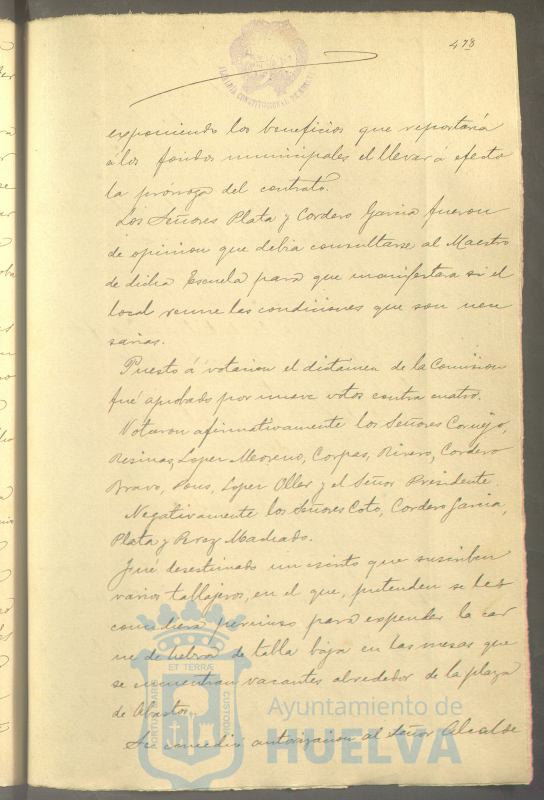 478
exponiendo los beneficios que reportaria
á los fondos municipales el llevar á efecto
la prórroga del contrato.
Los Señores Plata y Cordero Garcia fueron
de opinion que debia consultarse al Maestro
de dicha Escuela para que manifestara si el
local reune las condiciones que son nece
sarias.
Puesto á votacion el dictamen de la Comision
fué aprobado por nueve votos contra cuatro.
Votaron afirmativamente los Señores Cornejo,
Resinas, Lopez Moreno, Corpas, Rivero, Cordero
Bravo, Pons, Lopez Oller y el Señor Presidente.
Negativamente los Señores Coto, Cordero Garcia,
Plata y Perez Machado.
Fué desestimado un escrito que suscriben
varios tablajeros, en el que, pretenden se les
concediera permiso para expender la car
ne de hebra de tabla baja en las mesas que
se encuentran vacantes alrededor de la plaza
de Abastos.
Se concedió autorizacion al Señor Alcalde
PORTUS MARIS ET TERRÆ CUSTODIA
Ayuntamiento de
HUELVA